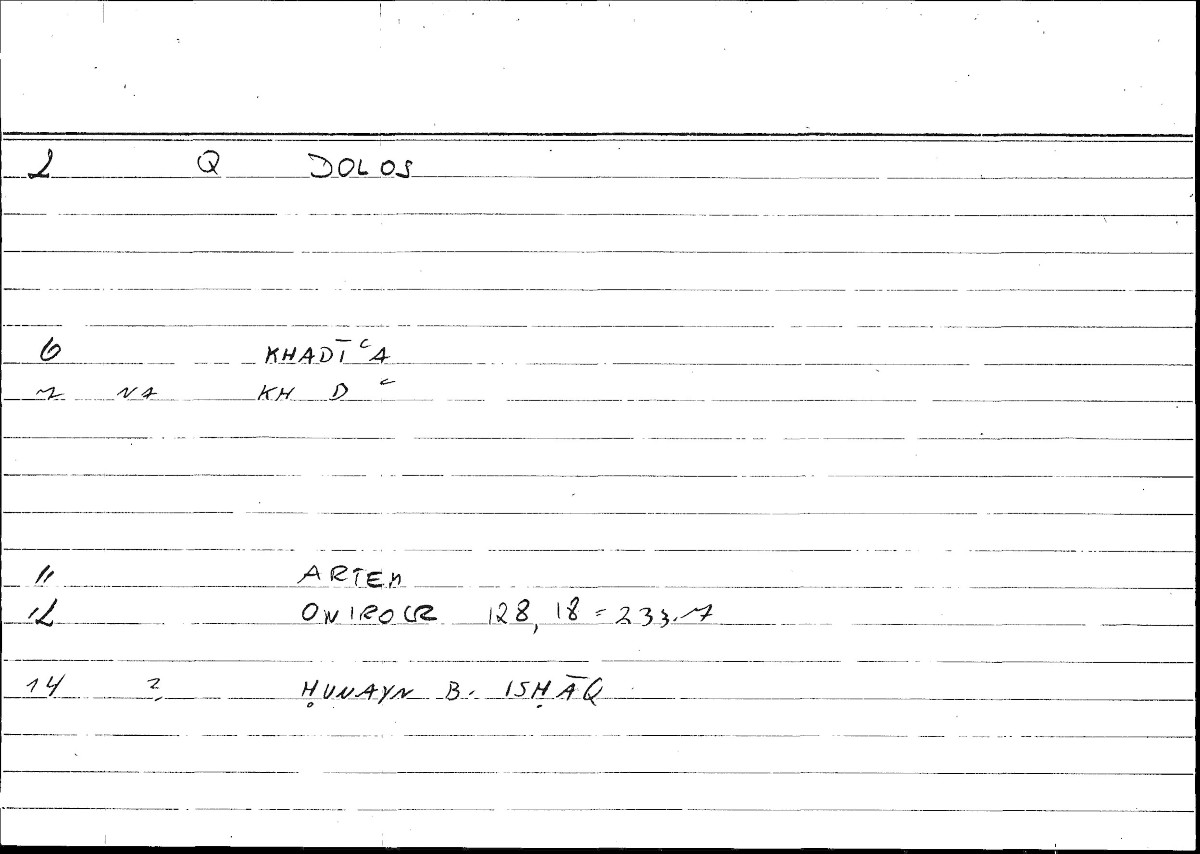 2 Q DOLOS
6 KHADĪʿA
7 NA KH D ʿ
11 ARTEM
12 ONIROCR 128,18 = 233.7
14 2 ḤUNAYN B. ISḤĀQ